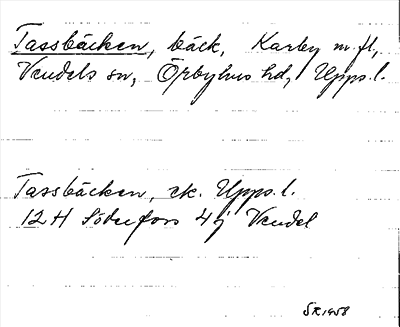 Tassbäcken, bäck, Karby m. fl.,
Vendels sn, Örbyhus hd, Upps. l.
Tassbäcken, ek. Upps. l.
12 H Söderfors 4j Vendel
SR 1958